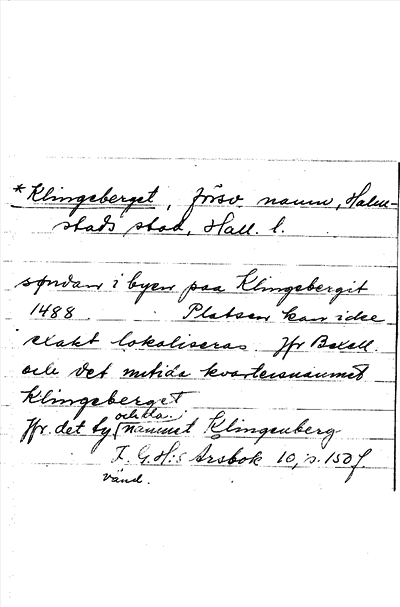 *Klingeberget, försv. namn, Halm-
stads stad, Hall. l.
søndan i byen paa Klingebergit
1488 Platsen kan icke
exakt lokaliseras. Jfr Bexell.
och det nutida kvartersnamnet
Klingeberget
Jfr. det ty namnet Klingenberg
F. G.H:s Årsbok 10, s. 150 f.
vänd.